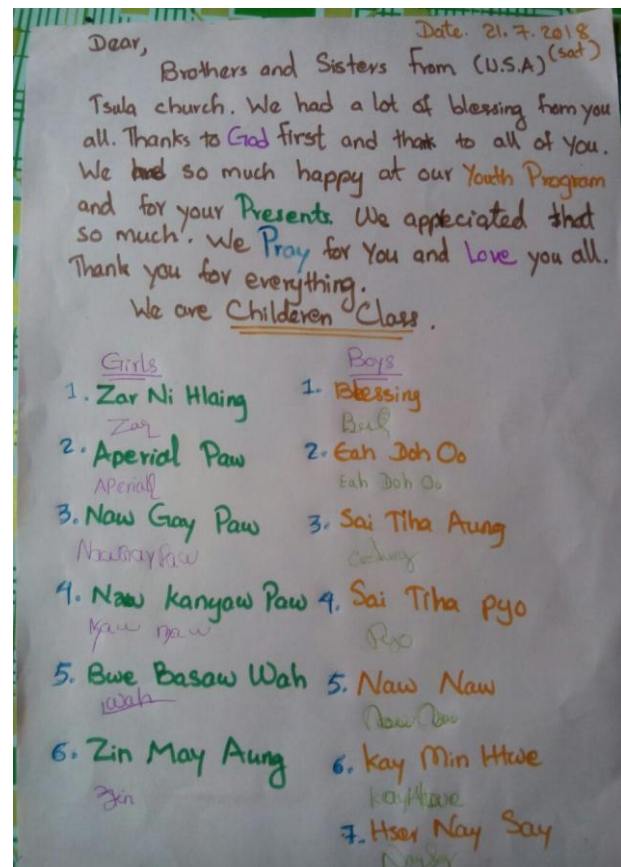 Date. 21.7.2018
(sat)
Dear,
Brothers and Sisters from (U.S.A)
Tsula church. We had a lot of blessing from you
all. Thanks to God first and thank to all of you.
We so much happy at our Youth Program
and for your Presents. We appeciated that
so much. We Pray for You and Love you all.
Thank you for everything.
We are Childeren Class.
Girls
1. Zar Ni Hlaing
Zar
2. Aperial Paw
APerial
3. Naw Gay Paw
Naw Gay Paw
4. Naw Kanyaw Paw
5. Bwe Basaw Wah
Wah
6. Zin May Aung
Zin
Boys
1. Blessing
2. Eah Doh Oo
Eah Doh Oo
3. Sai Tiha Aung
4. Sai Tiha Pyo
Pyo
5. Naw Naw
Naw Naw
6. Kay Min Htwe
Kay Htwe
7. Hser Nay Say